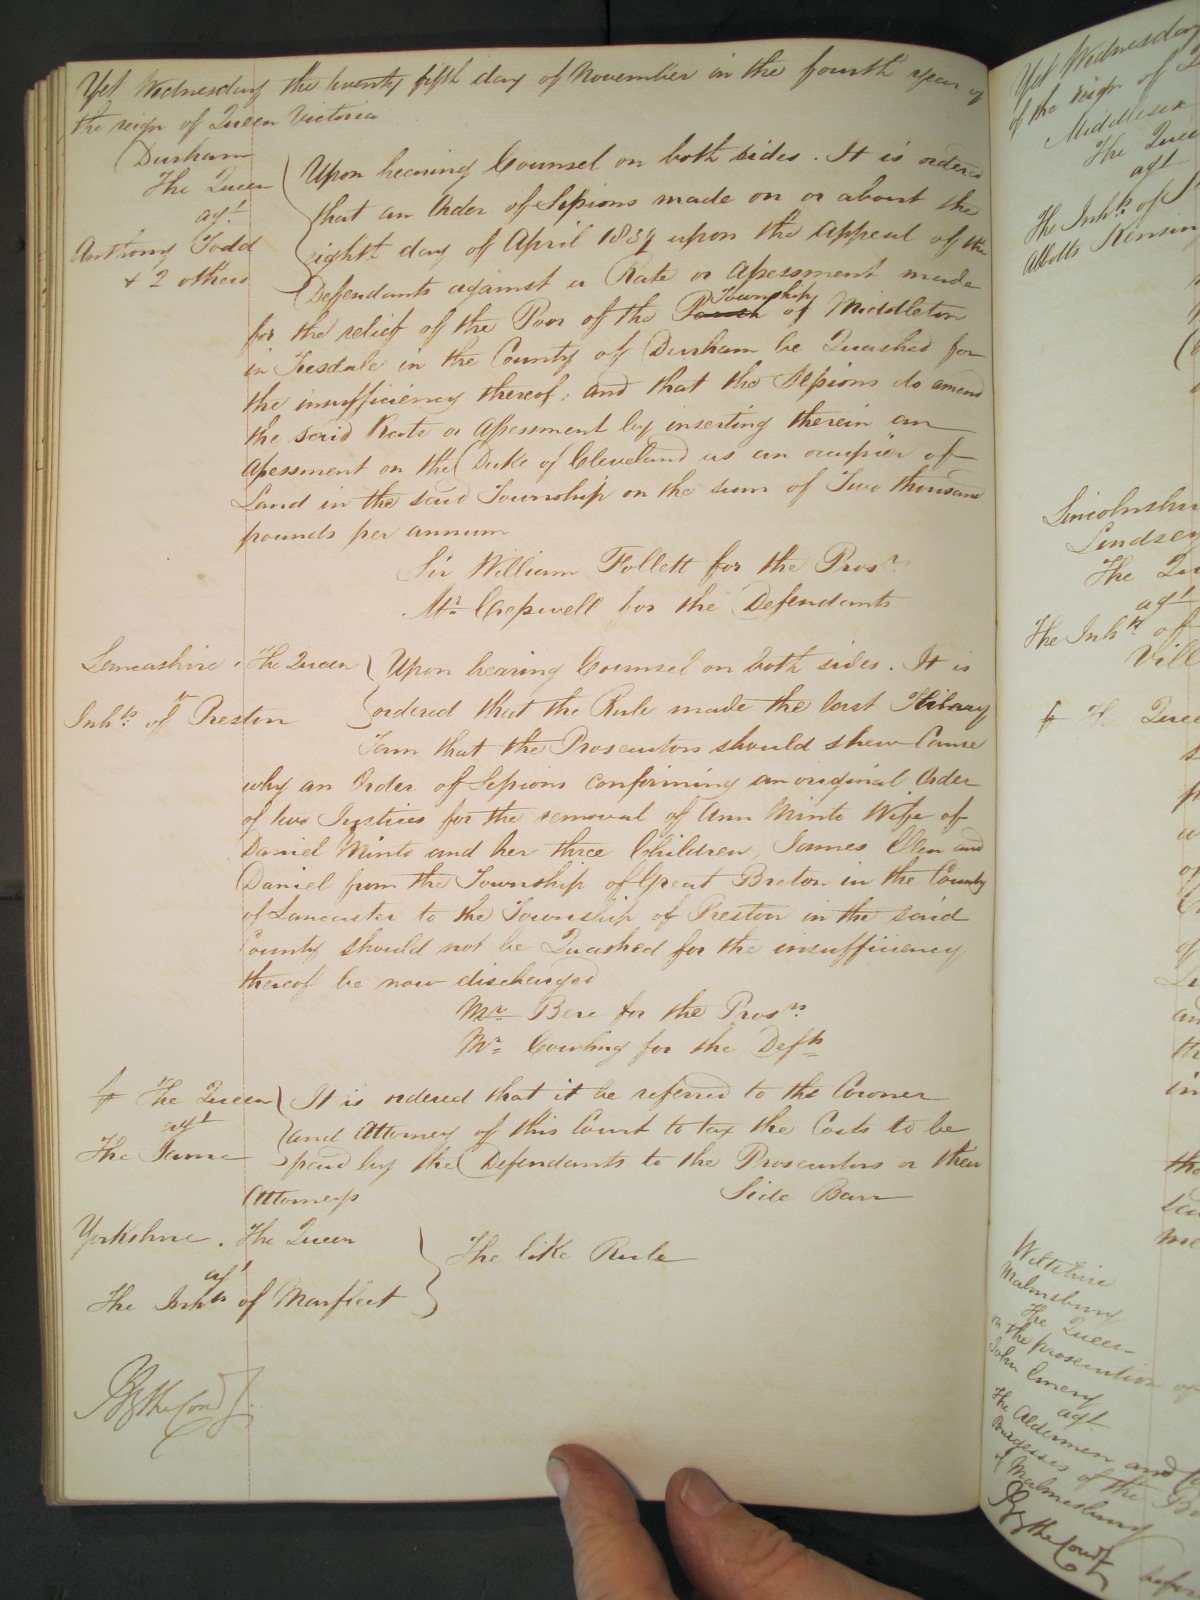 Yet Wednesday the twenty fifth day of November in the fourth year of
the reign of Queen Victoria
Durham
The Queen
agt
Anthony Todd
& 2 others
Upon hearing Counsel on both sides. It is ordered
that an Order of Sessions made on or about the
eighth day of April 1839 upon the appeal of the
Defendants against a Rate or Assessment made
for the relief of the Poor of the Parish Township of Middleton
in Teesdale in the County of Durham be Quashed for
the insufficiency thereof, and that the Sessions do amend
the said Rate or Assessment by inserting therein an
Assessment on the Duke of Cleveland as an occupier of
Land in the said Township on the sum of Two thousand
pounds per annum
Sir William Follett for the Prosrs
Mr Cresswell for the Defendants
Lancashire. The Queen
agt
Inhts of Preston
Upon hearing Counsel on both sides. It is
ordered that the Rule made the last Hilary
Term that the Prosecutors should shew Cause
why an Order of Sessions confirming an original Order
of two Justices for the removal of Ann Minto Wife of
Daniel Minto and her three Children, James Ellen and
Daniel from the Township of Great Broton in the County
of Lancaster to the Township of Preston in the said
County should not be Quashed for the insufficiency
thereof be now discharged
Mr Bere for the Prosrs
Mr Cowling for the Defts
The Queen
agt
The Same
It is ordered that it be referred to the Coroner
and Attorney of this Court to tax the Costs to be
paid by the Defendants to the Prosecutors or their
Attorneys
Side Barr
Yorkshire. The Queen
agt
The Inhts of Marfleet
The like Rule
By the Court
Yet Wednesday
of the reign of
Middlesex
The Queen
agt
The Inhts of S
Abbotts Kensin
Lincolnshir
Lindsey
The Qu
agt
The Inhts of
Vill
The Quee
Wiltshire
Malmsbury
The Queen
on the prosecution of
John Emery
agt
The Aldermen and
Burgesses of the Bo
of Malmsbury
By the Court